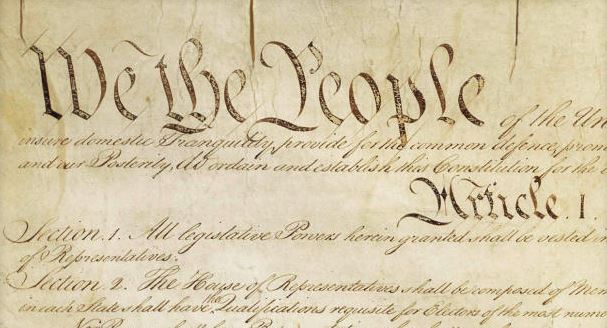 We the People of the Un
insure domestic Tranquility, provide for the common defence, prom
and our Posterity, do ordain and establish this Constitution for the
Article. I.
Section. 1. All legislative Powers herein granted shall be vested in
of Representatives.
Section. 2. The House of Representatives shall be composed of Mem
in each State shall have the Qualifications requisite for Electors of the most nume
No Person shall